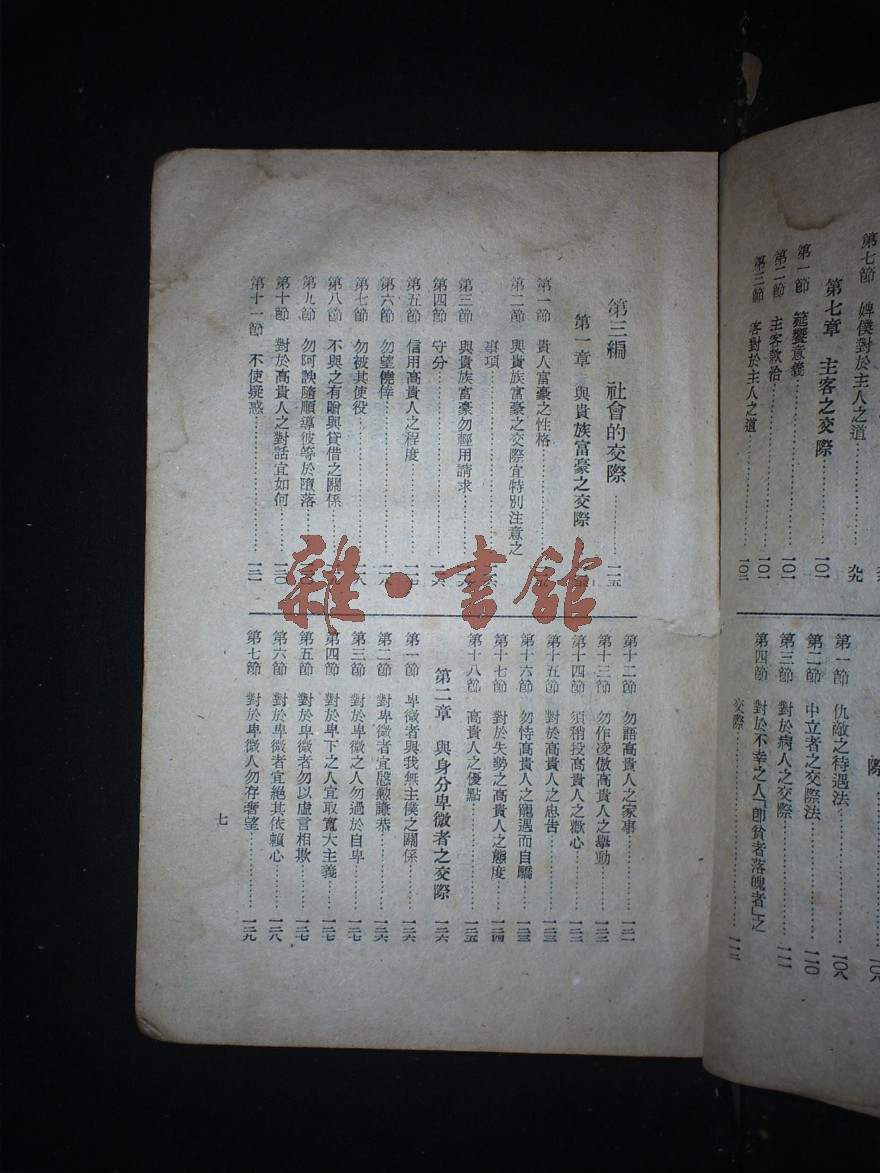 第七節 婢僕對於主人之道
第七章 主客之交際 一〇一
第一節 筵饗意義 一〇一
第二節 主客款洽 一〇一
第三節 客對於主人之道 一〇三
際 一〇八
第一節 仇敵之待遇法 一〇八
第二節 中立者之交際法 一一〇
第三節 對於病人之交際 一一一
第四節 對於不幸之人「即貧者落魄者」之
交際 一一二
第三編 社會的交際 一一五
第一章 與貴族富豪之交際
第一節 貴人富豪之性格
第二節 與貴族富豪之交際宜特別注意之
事項
第三節 與貴族富豪勿輕用請求
第四節 守分 一一六
第五節 信用高貴人之程度 一一七
第六節 勿望僥倖 一一八
第七節 勿被其使役 一一八
第八節 不與之有贈與貸借之關係
第九節 勿阿諛隨順導彼等於墮落
第十節 對於高貴人之對話宜如何 一二〇
第十一節 不使疑惑 一二一
第十二節 勿語高貴人之家事 一二一
第十三節 勿作凌傲高貴人之舉動 一二二
第十四節 須稍投高貴人之歡心 一二三
第十五節 對於高貴人之忠告 一二三
第十六節 勿恃高貴人之寵遇而自驕 一二三
第十七節 對於失勢之高貴人之態度 一二四
第十八節 高貴人之優點 一二五
第二章 與身分卑微者之交際 一二六
第一節 卑微者與我無主僕之關係 一二六
第二節 對卑微者宜慇懃謙恭 一二六
第三節 對於卑微之人勿過於自卑 一二七
第四節 對於卑下之人宜取寬大主義 一二七
第五節 對於卑微者勿以虛言相欺 一二七
第六節 對於卑微者宜絕其依賴心 一二八
第七節 對於卑微人勿存奢望 一二九
七
雜·書館